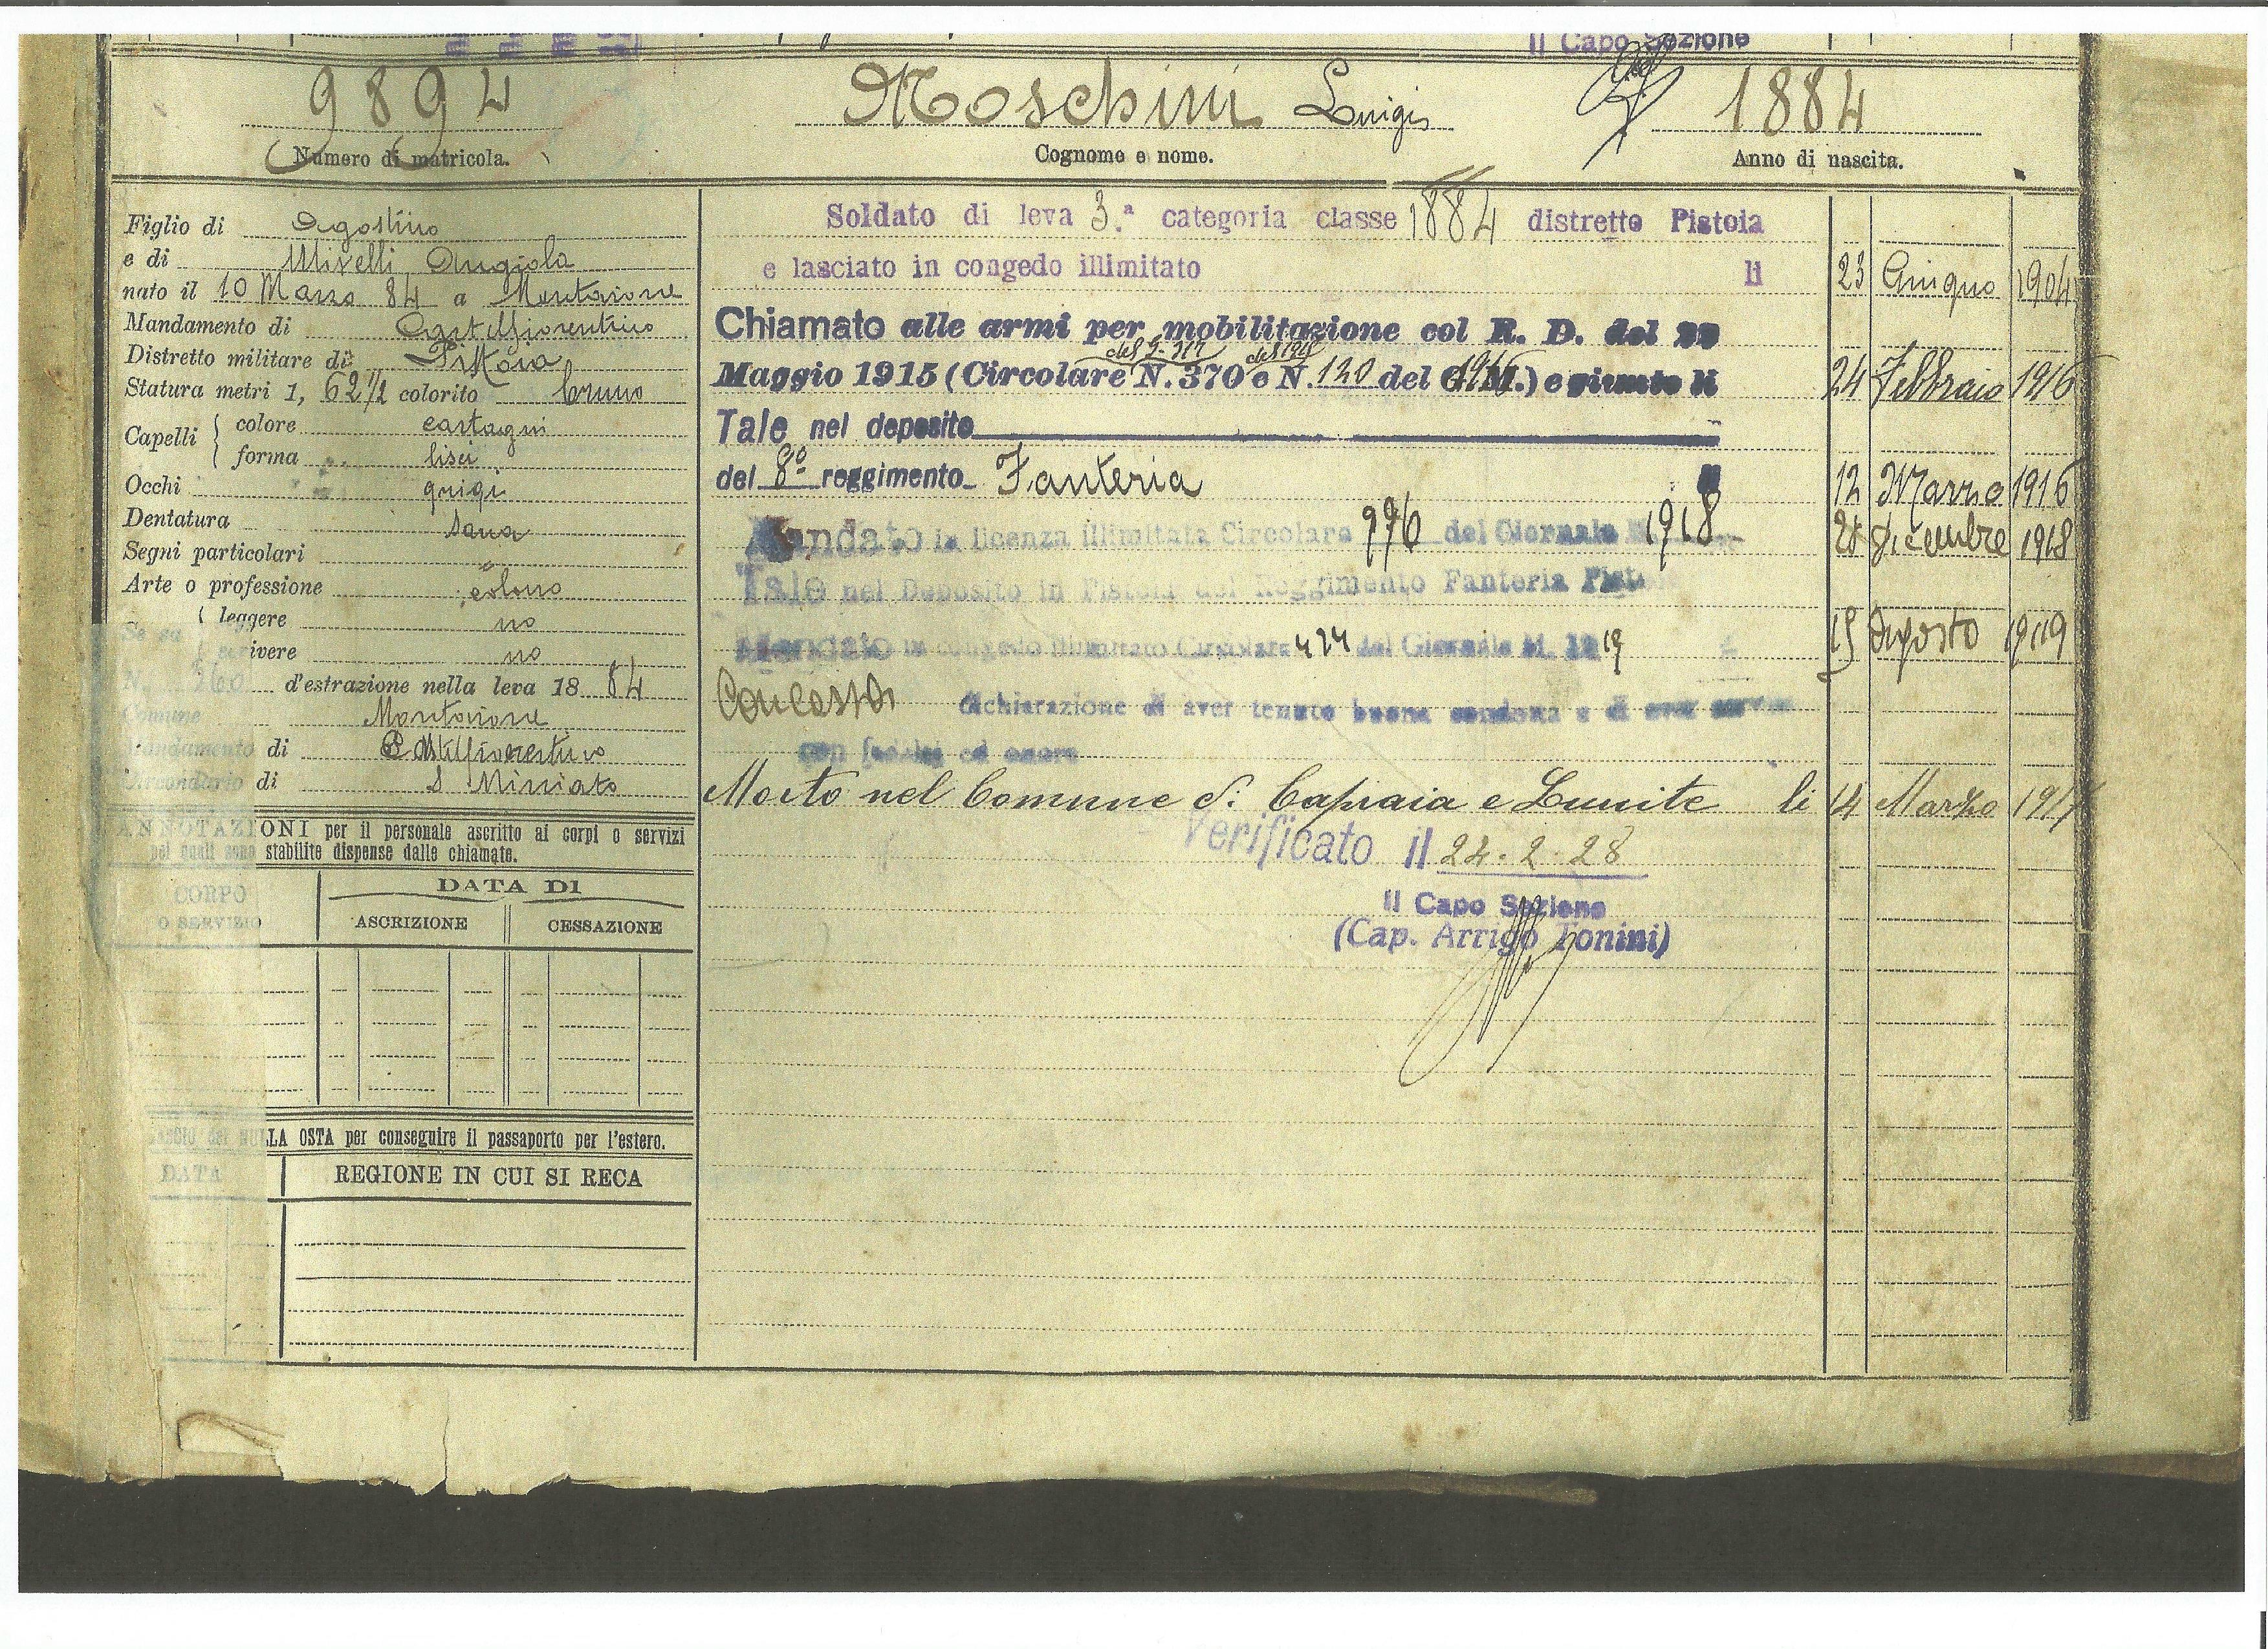 Il Capo Sezione
9894 Moschini Luigi 1884
Numero di matricola. Cognome e nome. Anno di nascita.
Figlio di Agostino
e di Mivelli Angiola
nato il 10 Marzo 84 a Montaione
Mandamento di Castelfiorentino
Distretto militare di Pistoia
Statura metri 1, 62 1/2 colorito bruno
Capelli { colore castagni
forma lisci
Occhi grigi
Dentatura sana
Segni particolari
Arte o professione colono
Se sa { leggere no
scrivere no
N. 260 d'estrazione nella leva 18 84
Comune Montaione
Mandamento di Castelfiorentino
Circondario di S Miniato
ANNOTAZIONI per il personale ascritto ai corpi o servizi
pei quali sono stabilite dispense dalle chiamate.
CORPO
O SERVIZIO
DATA DI
ASCRIZIONE CESSAZIONE
NULLA OSTA per conseguire il passaporto per l'estero.
DATA REGIONE IN CUI SI RECA
Soldato di leva 3.ª categoria classe 1884 distretto Pistoia
e lasciato in congedo illimitato li 23 Giugno 1904
Chiamato alle armi per mobilitazione col R. D. del 22
Maggio 1915 (Circolare N. 370 e N. 120 del G. M.) e giunto li 24 Febbraio 1916
Tale nel deposito
del 8º reggimento Fanteria li 12 Marzo 1916
Mandato in licenza illimitata Circolare 996 del Giornale 1918 28 Dicembre 1918
Tale nel Deposito in Pistoia del Reggimento Fanteria
Mandato in congedo illimitato Circolare 424 del Giornale M. 1919 15 Agosto 1919
Concessa dichiarazione di aver tenuto buona condotta e di aver servito
con fedeltà ed onore
Morto nel Comune di Capraia e Limite li 14 Marzo
Verificato il 24. 2. 28
Il Capo Sezione
(Cap. Arrigo Tonini)